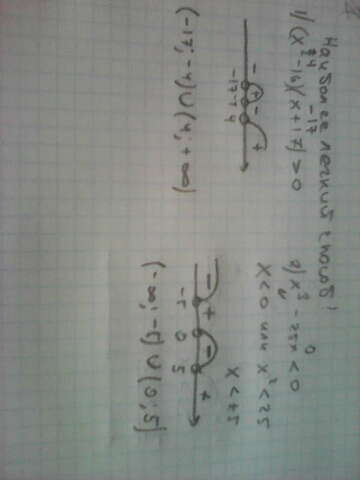 Наиболее легкий способ!
1) (x²-16)(x+17)>0
±4 -17
- + - +
-17 -4 4
(-17; -4) ∪ (4; +∞)
2) x³ - 25x < 0
0
x<0 или x²<25
x<±5
- + - +
-5 0 5
(-∞; -5) ∪ (0; 5)